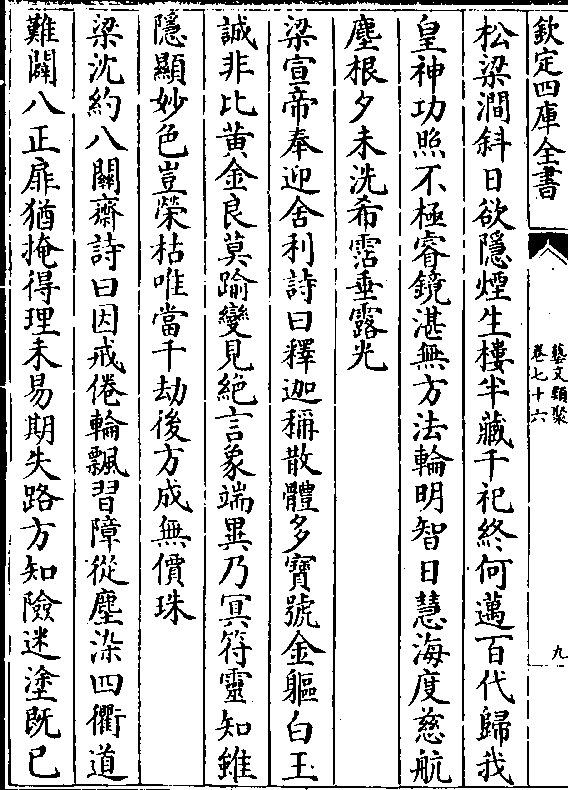 欽定四庫全書
藝文類聚
卷七十六
九
松梁澗斜日欲隱煙生樓半藏千祀終何邁百代歸我
皇神功照不極睿鏡湛無方法輪明智日慧海度慈航
塵根夕未洗希霑垂露光
梁宣帝奉迎舍利詩曰釋迦稱散體多寳號金軀白玉
誠非比黄金良莫踰變見絶言象端異乃冥符靈知雖
隱顯妙色豈榮枯唯當千劫後方成無價珠
梁沈約八關齋詩曰因戒倦輪飄習障從塵染四衢道
難闢八正扉猶掩得理未易期失路方知險迷塗既已